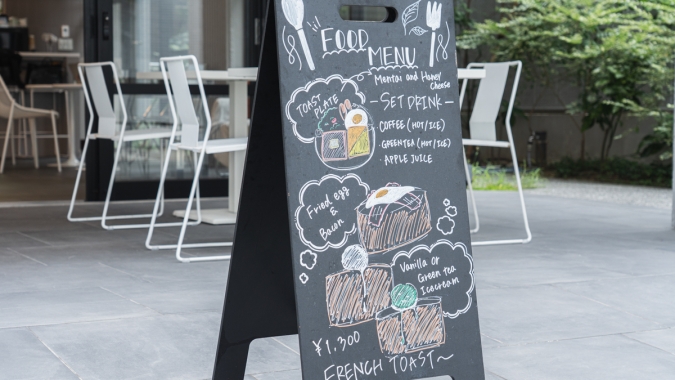 FOOD
MENU
Mentai and Honey
Cheese
TOAST
PLATE
- SET DRINK -
COFFEE (HOT/ICE)
GREENTEA (HOT/ICE)
APPLE JUICE
Fried egg
&
Bacon
Vanilla or
Green tea
Icecream
¥1,300
FRENCH TOAST~